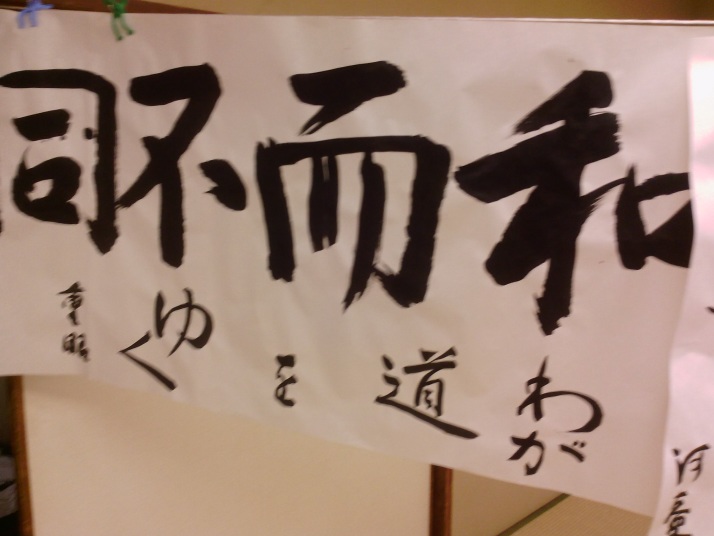 和而不同
わが道をゆく
重昭